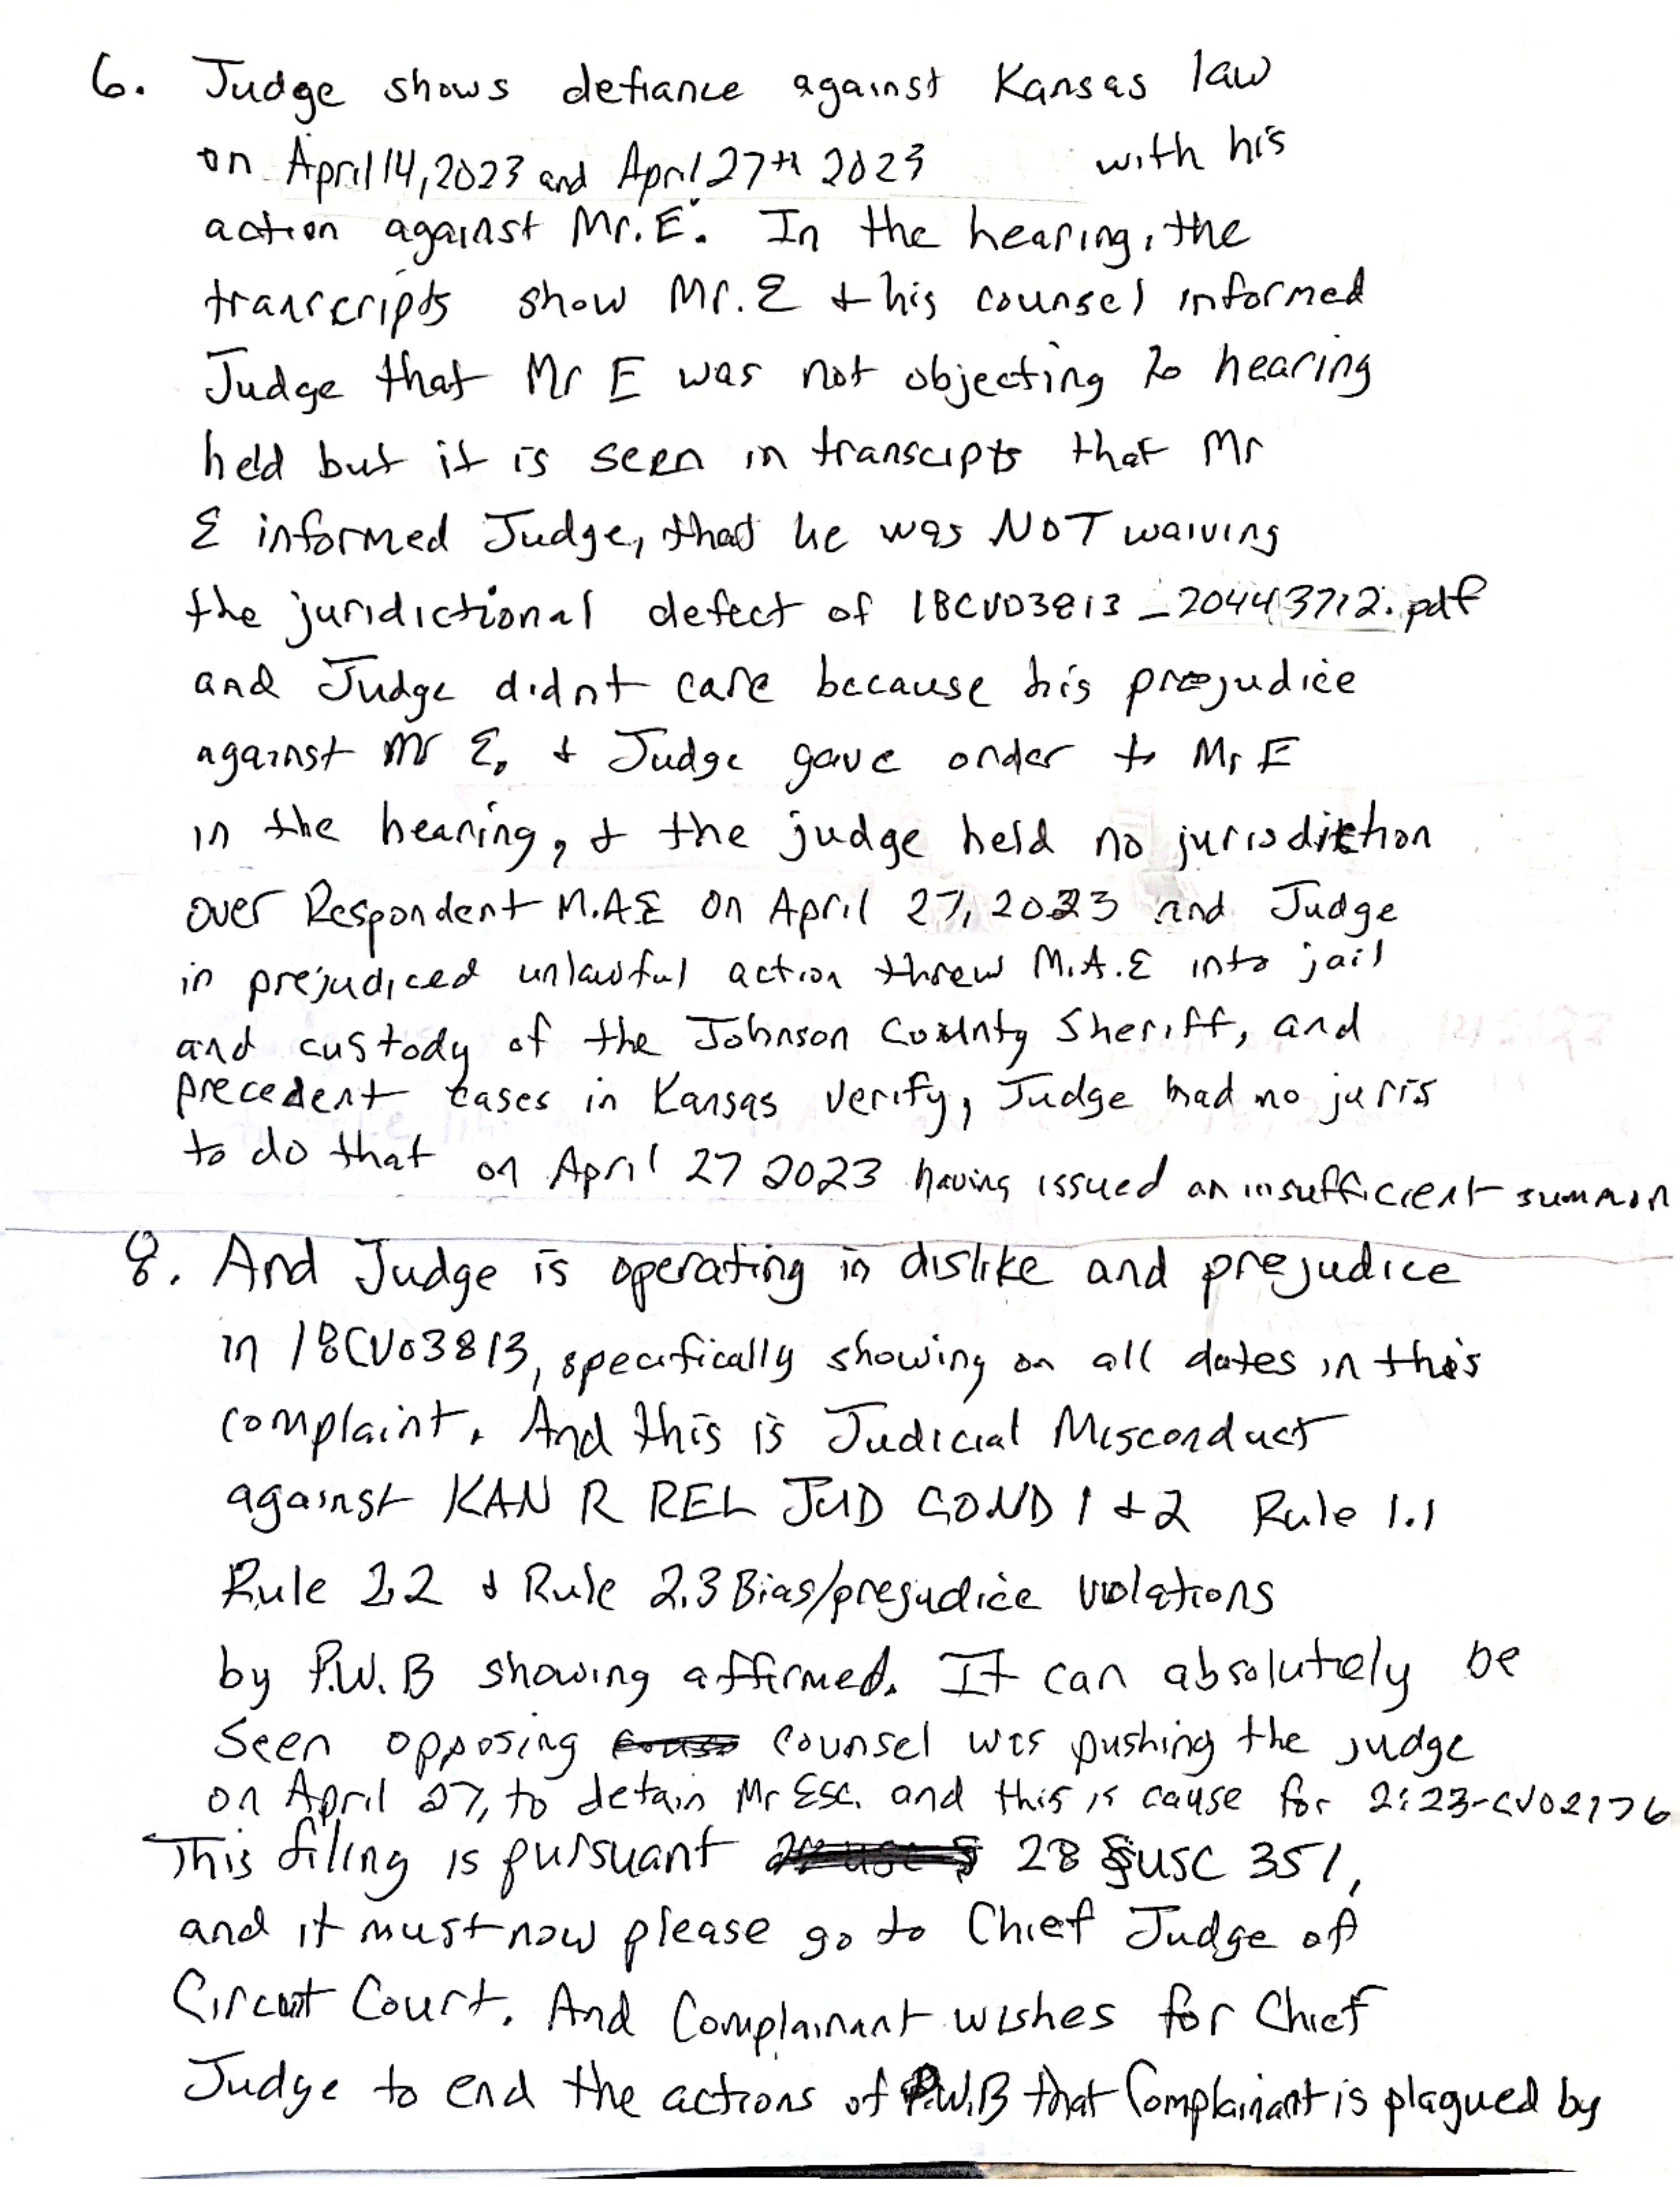 6. Judge shows defiance against Kansas law
on April 14, 2023 and April 27th 2023 with his
action against Mr. E. In the hearing, the
transcripts show Mr. E & his counsel informed
Judge that Mr E was not objecting to hearing
held but it is seen in transcipts that Mr
E informed Judge, that he was NOT waiving
the juridictional defect of 18CV03813_20443712.pdf
and Judge didnt care because his prejudice
against Mr E, & Judge gave order to Mr E
in the hearing, & the judge held no jurisdiction
over Respondent M.A.E on April 27, 2023 and Judge
in prejudiced unlawful action threw M.A.E into jail
and custody of the Johnson County Sheriff, and
precedent cases in Kansas verify, Judge had no juris
to do that on April 27 2023 having issued an insufficient summon
8. And Judge is operating in dislike and prejudice
in 18CV03813, specifically showing on all dates in this
complaint. And this is Judicial Misconduct
against KAN R REL JUD COND 1 & 2 Rule 1.1
Rule 2.2 & Rule 2.3 Bias/prejudice violations
by P.W.B showing affirmed. It can absolutely be
seen opposing counsel was pushing the judge
on April 27, to detain Mr Esc. and this is cause for 2:23-CV02176
This filing is pursuant 28 § USC 351,
and it must now please go to Chief Judge of
Circuit Court. And Complainant wishes for Chief
Judge to end the actions of P.W.B that Complainant is plagued by